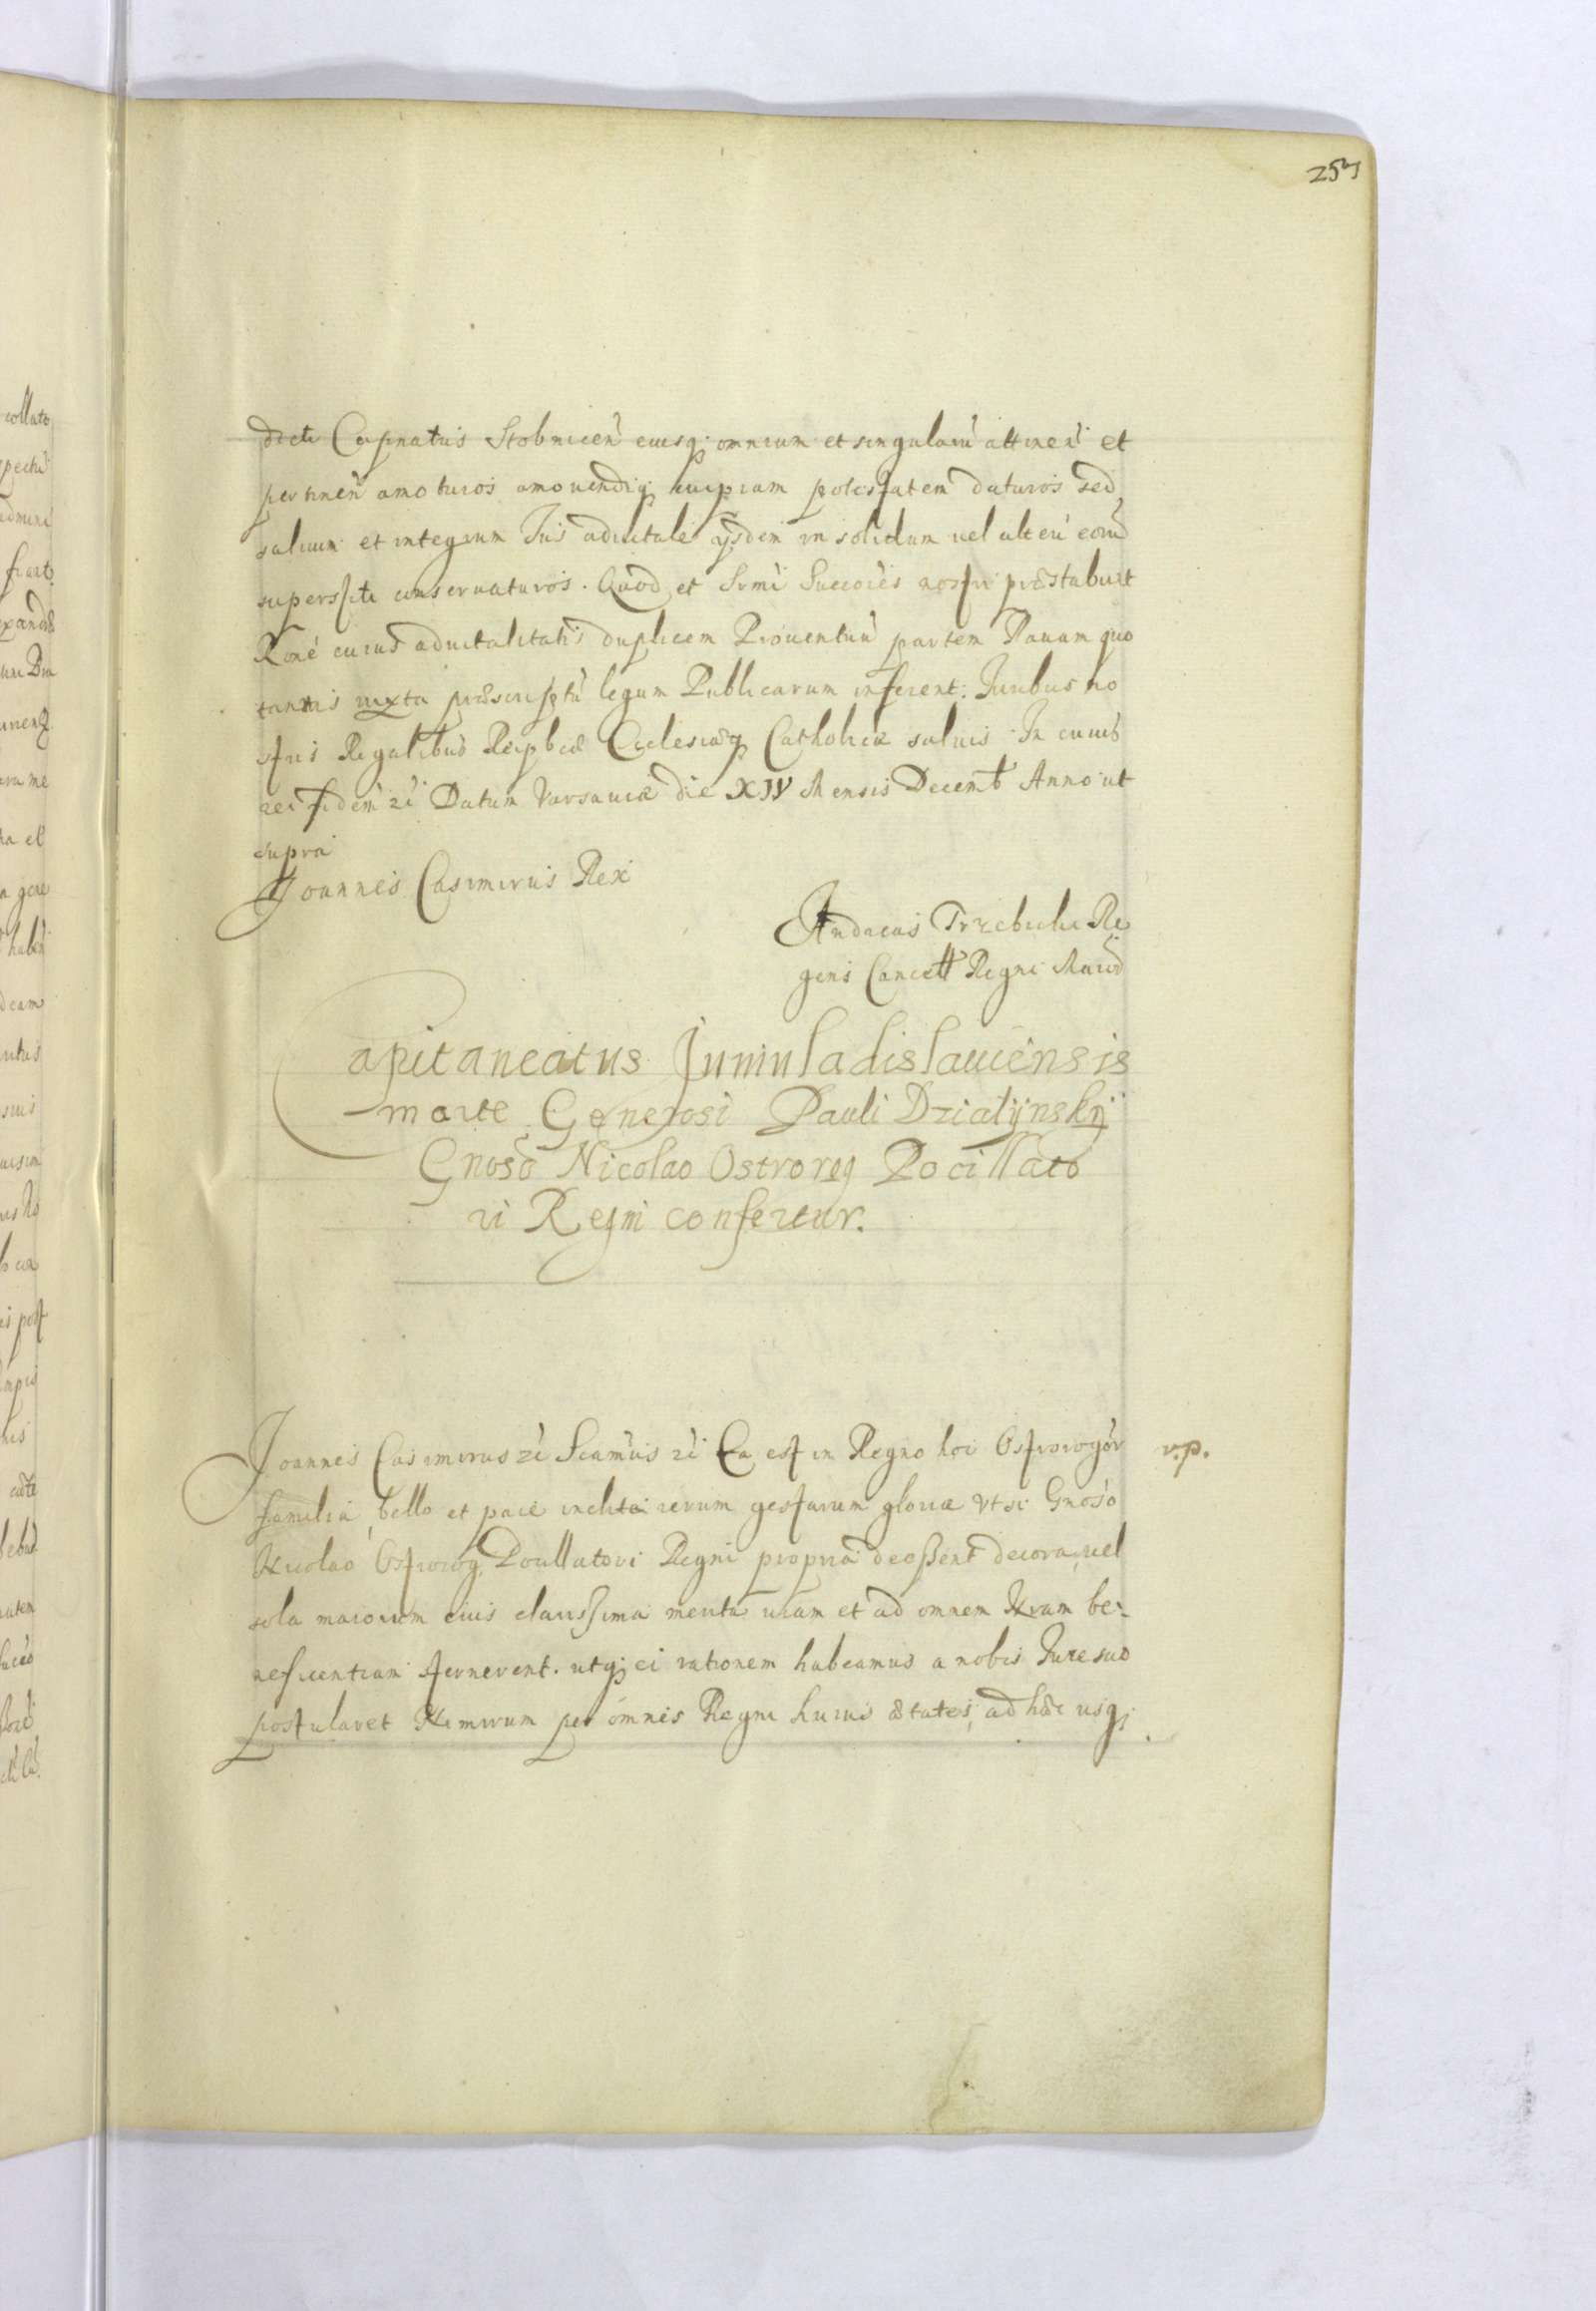 ddcti Capnatus Stobnicen̄ eiusq; omnium et singularū attinen̄ et
pertinen̄ amoturos amouendiq; cuipiam potestatem daturos sed
saluum et integrum Ius aduitale ijsdem in solidum uel alteri eorū
superstiti conseruaturos. Quod et Srmi Succores nostri præstabunt
Rone cuius aduitalitatis duplicem Prouentuū partem Rauam quo
tannis iuxta præscriptū legum Publicarum inferent. Iuribus no
stris Regalibus Reipbcæ Ecclesiæq; Catholicæ saluis. In cuius
rei fidem ri Datum Varsauiæ die XIV Mensis Decemb Anno ut
supra
Joannes Casimirus Rex
Andreas Trzebicki Re
gens Cancell Regni
Capitaneatus Juniuladislauiensis
morte Generosi Pauli Dzialijnskij
Gnoso Nicolao Ostrorog Pocillato
ri Regni confertur.
Joannes Casimirus ri Scamuis ri Ea est in Regno hoc Ostrorogor
familia, bello et pace inclita rerum gestarum gloria Vt si Gnoso
Nicolao Ostrorog Pocillatori Regni propria deessent decora, uel
sola maiorum eius clarissima merita uiam et ad omnem Nram be-
neficentiam sternerent. utq; ei rationem habeamus a nobis Jure suo
postularet Nimirum per omnes Regni huius ætates, ad hæc usq;
v.p.